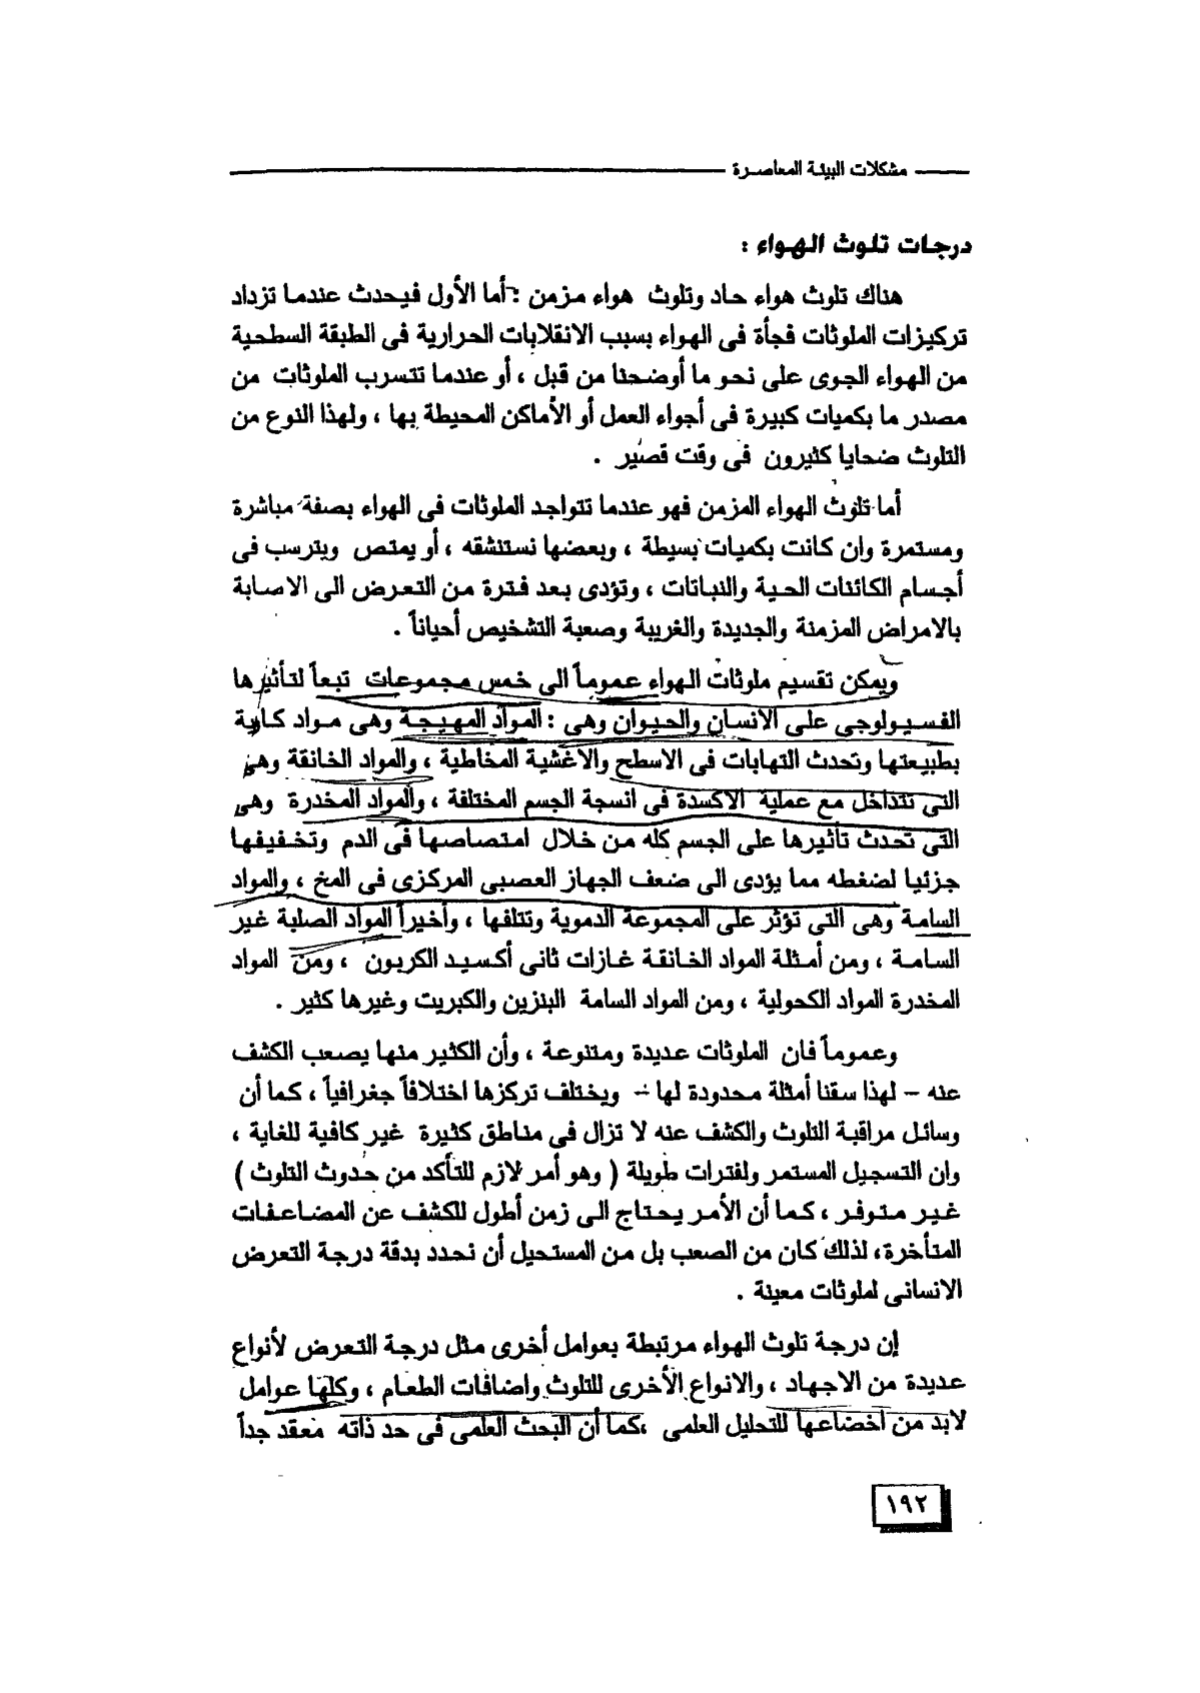 مشكلات البيئة المعاصرة
درجات تلوث الهواء :
هناك تلوث هواء حاد وتلوث هواء مزمن : أما الأول فيحدث عندما تزداد
تركيزات الملوثات فجأة فى الهواء بسبب الانقلابات الحرارية فى الطبقة السطحية
من الهواء الجوى على نحو ما أوضحنا من قبل ، أو عندما تتسرب الملوثات من
مصدر ما بكميات كبيرة فى أجواء العمل أو الأماكن المحيطة بها ، ولهذا النوع من
التلوث ضحايا كثيرون فى وقت قصير .
أما تلوث الهواء المزمن فهو عندما تتواجد الملوثات فى الهواء بصفة مباشرة
ومستمرة وان كانت بكميات بسيطة ، وبعضها نستنشقه ، أو يمتص ويترسب فى
أجسام الكائنات الحية والنباتات ، وتؤدى بعد فترة من التعرض الى الاصابة
بالامراض المزمنة والجديدة والغريبة وصعبة التشخيص أحياناً .
ويمكن تقسيم ملوثات الهواء عموماً الى خمس مجموعات تبعاً لتأثيرها
الفسيولوجى على الانسان والحيوان وهى : المواد المهيجة وهى مواد كاوية
بطبيعتها وتحدث التهابات فى الاسطح والاغشية المخاطية ، والمواد الخانقة وهى
التى تتداخل مع عملية الاكسدة فى انسجة الجسم المختلفة ، والمواد المخدرة وهى
التى تحدث تأثيرها على الجسم كله من خلال امتصاصها فى الدم وتخفيفها
جزئيا لضغطه مما يؤدى الى ضعف الجهاز العصبى المركزى فى المخ ، والمواد
السامة وهى التى تؤثر على المجموعة الدموية وتتلفها ، وأخيراً المواد الصلبة غير
السامة ، ومن أمثلة المواد الخانقة غازات ثانى أكسيد الكربون ، ومن المواد
المخدرة المواد الكحولية ، ومن المواد السامة البنزين والكبريت وغيرها كثير .
وعموماً فان الملوثات عديدة ومتنوعة ، وأن الكثير منها يصعب الكشف
عنه – لهذا سقنا أمثلة محدودة لها – ويختلف تركزها اختلافاً جغرافياً ، كما أن
وسائل مراقبة التلوث والكشف عنه لا تزال فى مناطق كثيرة غير كافية للغاية ،
وان التسجيل المستمر ولفترات طويلة ( وهو أمر لازم للتأكد من حدوث التلوث )
غير متوفر ، كما أن الأمر يحتاج الى زمن أطول للكشف عن المضاعفات
المتأخرة، لذلك كان من الصعب بل من المستحيل أن نحدد بدقة درجة التعرض
الانسانى لملوثات معينة .
إن درجة تلوث الهواء مرتبطة بعوامل أخرى مثل درجة التعرض لأنواع
عديدة من الاجهاد ، والانواع الأخرى للتلوث واضافات الطعام ، وكلها عوامل
لابد من اخضاعها للتحليل العلمى ، كما أن البحث العلمى فى حد ذاته معقد جداً
١٩٢